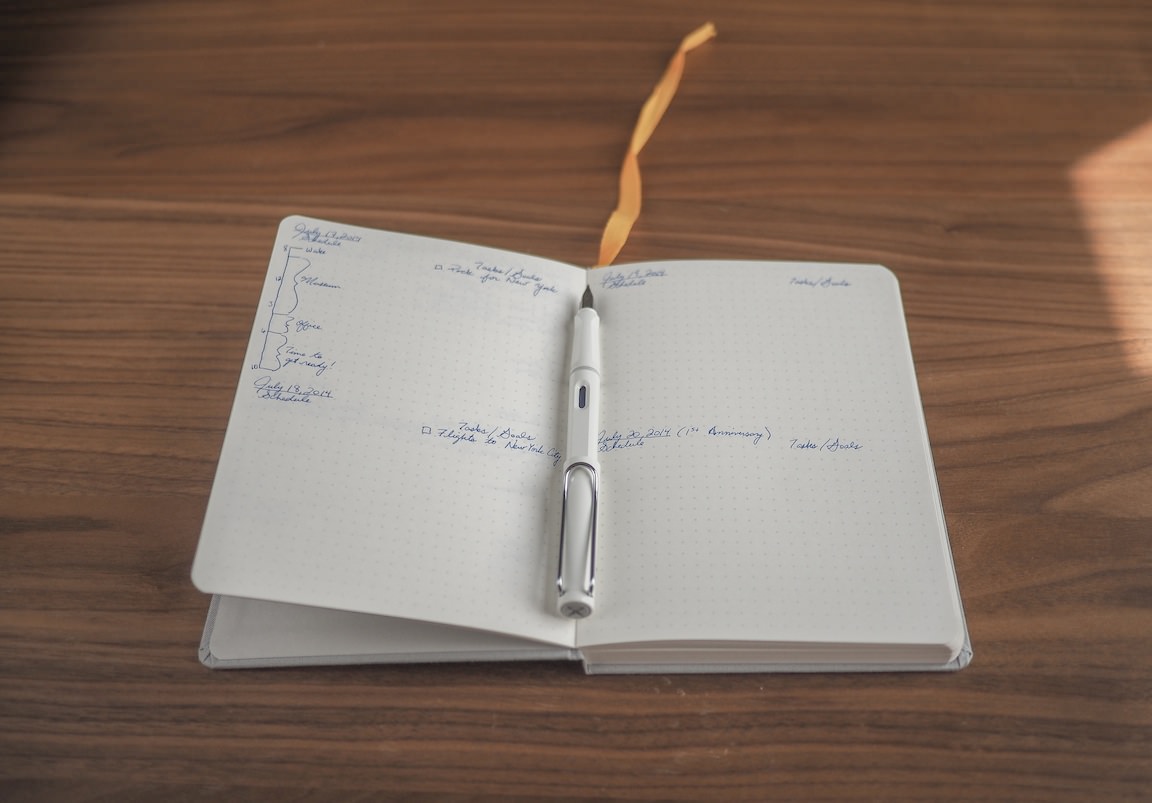 July 17, 2014
Schedule
8 Wake
Museum
Office
Time to
get ready!
Tasks/Goals
Pack for New York
July 18, 2014
Schedule
Tasks/Goals
Flights to New York City
July 19, 2014
Schedule
Tasks/Goals
July 20, 2014 (1st Anniversary)
Schedule
Tasks/Goals